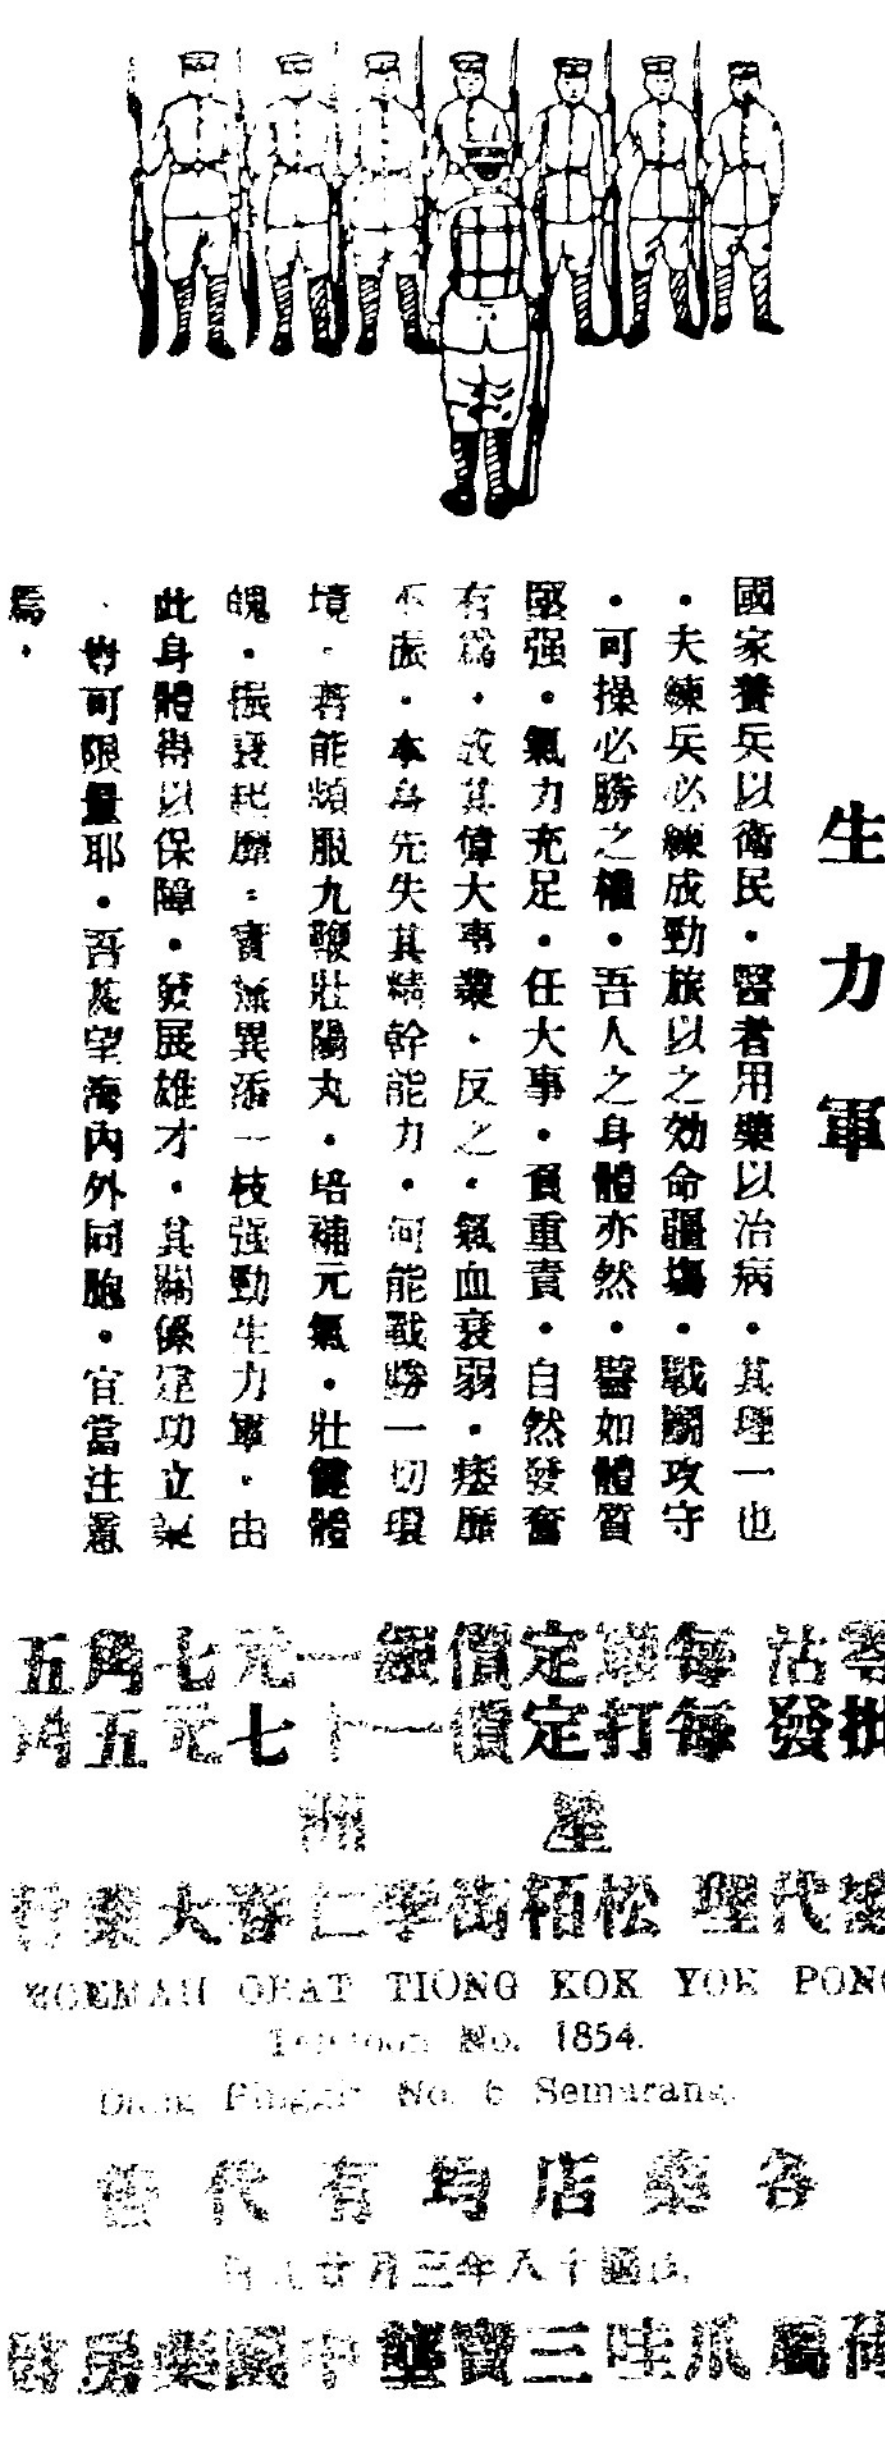 生力軍
國家養兵以衛民・醫者用藥以治病・其理一也
・夫練兵必練成勁旅以之効命疆場・戰鬭攻守
・可操必勝之權・吾人之身體亦然・譬如體質
堅强・氣力充足・任大事・負重責・自然發奮
有為・成其偉大事業・反之・氣血衰弱・痿靡
不振・本身先失其精幹能力・何能戰勝一切環
境・若能頻服九鞭壯陽丸・培補元氣・壯健體
魄・振衰起靡・實無異添一枝强勁生力軍・由
此身體得以保障・發展雄才・其關係建功立業
・豈可限量耶・吾甚望海內外同胞・宜當注意
焉・
零沽 每 定價銀一元七角五
批發 每打定價一十七元五角
星洲
代理 松栢街李仁春大藥行
ROEMAH OBAT TIONG KOK YOK PONG
Telefoon No. 1854.
No. 6 Semarang
各藥店均有代售
民國十八年三月廿 日
荷屬爪哇三寶壟中國藥房啓